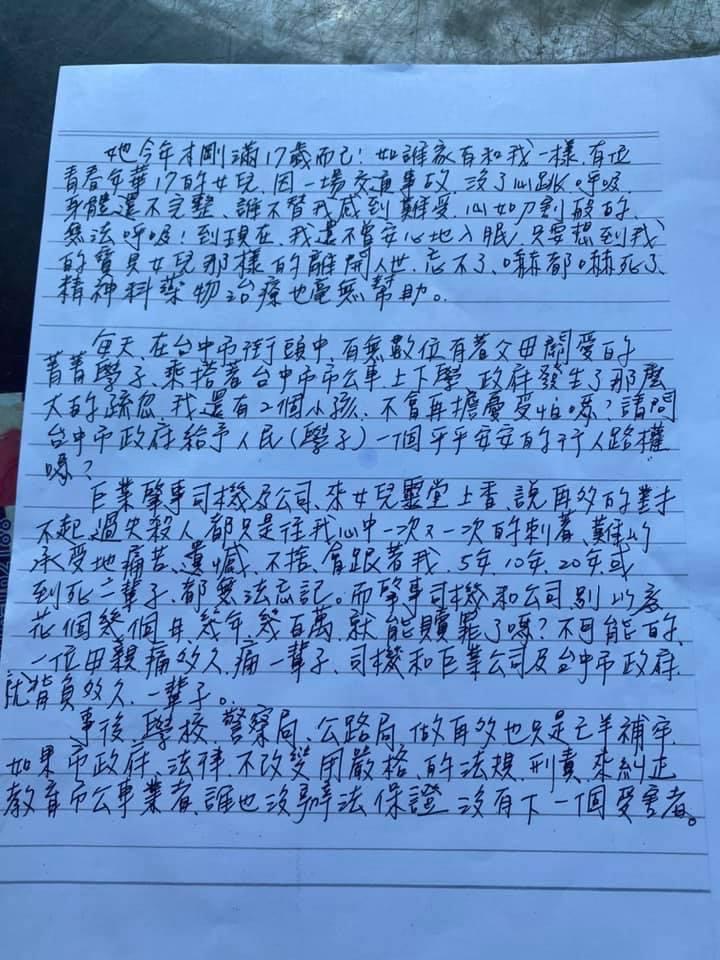 她今年才剛滿17歲而已！如誰家有和我一樣、有位
青春年華17的女兒、因一場交通事故、沒了心跳、呼吸、
身體還不完整、誰不替我感到難受、心如刀割般的、
無法呼吸！到現在、我還不曾安心地入眠、只要想到我
的寶貝女兒那樣的離開人世、忘不了、嘛都嘛死了、
精神科藥物治療也毫無幫助。
每天、在台中市街頭中、有無數位有著父母關愛的
菁菁學子、乘搭著台中市市公車、上下學、政府發生了那麼
大的疏忽、我還有2個小孩、不會再擔憂受怕嗎？請問
台中市政府給予人民(學子)一個平平安安的行人路權
嗎？
巨業肇事司機及公司、來女兒靈堂上香、說再多的對
不起、過失殺人、都只是往我心中一次又一次的刺著、難以
承受地痛苦、遺憾、不捨、會跟著我、5年、10年、20年、或
到死一輩子、都無法忘記。而肇事司機和公司、別以為
花個幾個月、幾年、幾百萬、就能贖罪了嗎？不可能的、
一位母親痛多久、痛一輩子、司機和巨業公司及台中市政府、
就背負多久、一輩子。
事後、學校、警察局、公路局、做再多也只是亡羊補牢、
如果市政府、法律、不改變用嚴格、的法規、刑責、來糾正
教育市公車業者、誰也沒辦法保證、沒有下一個受害者。